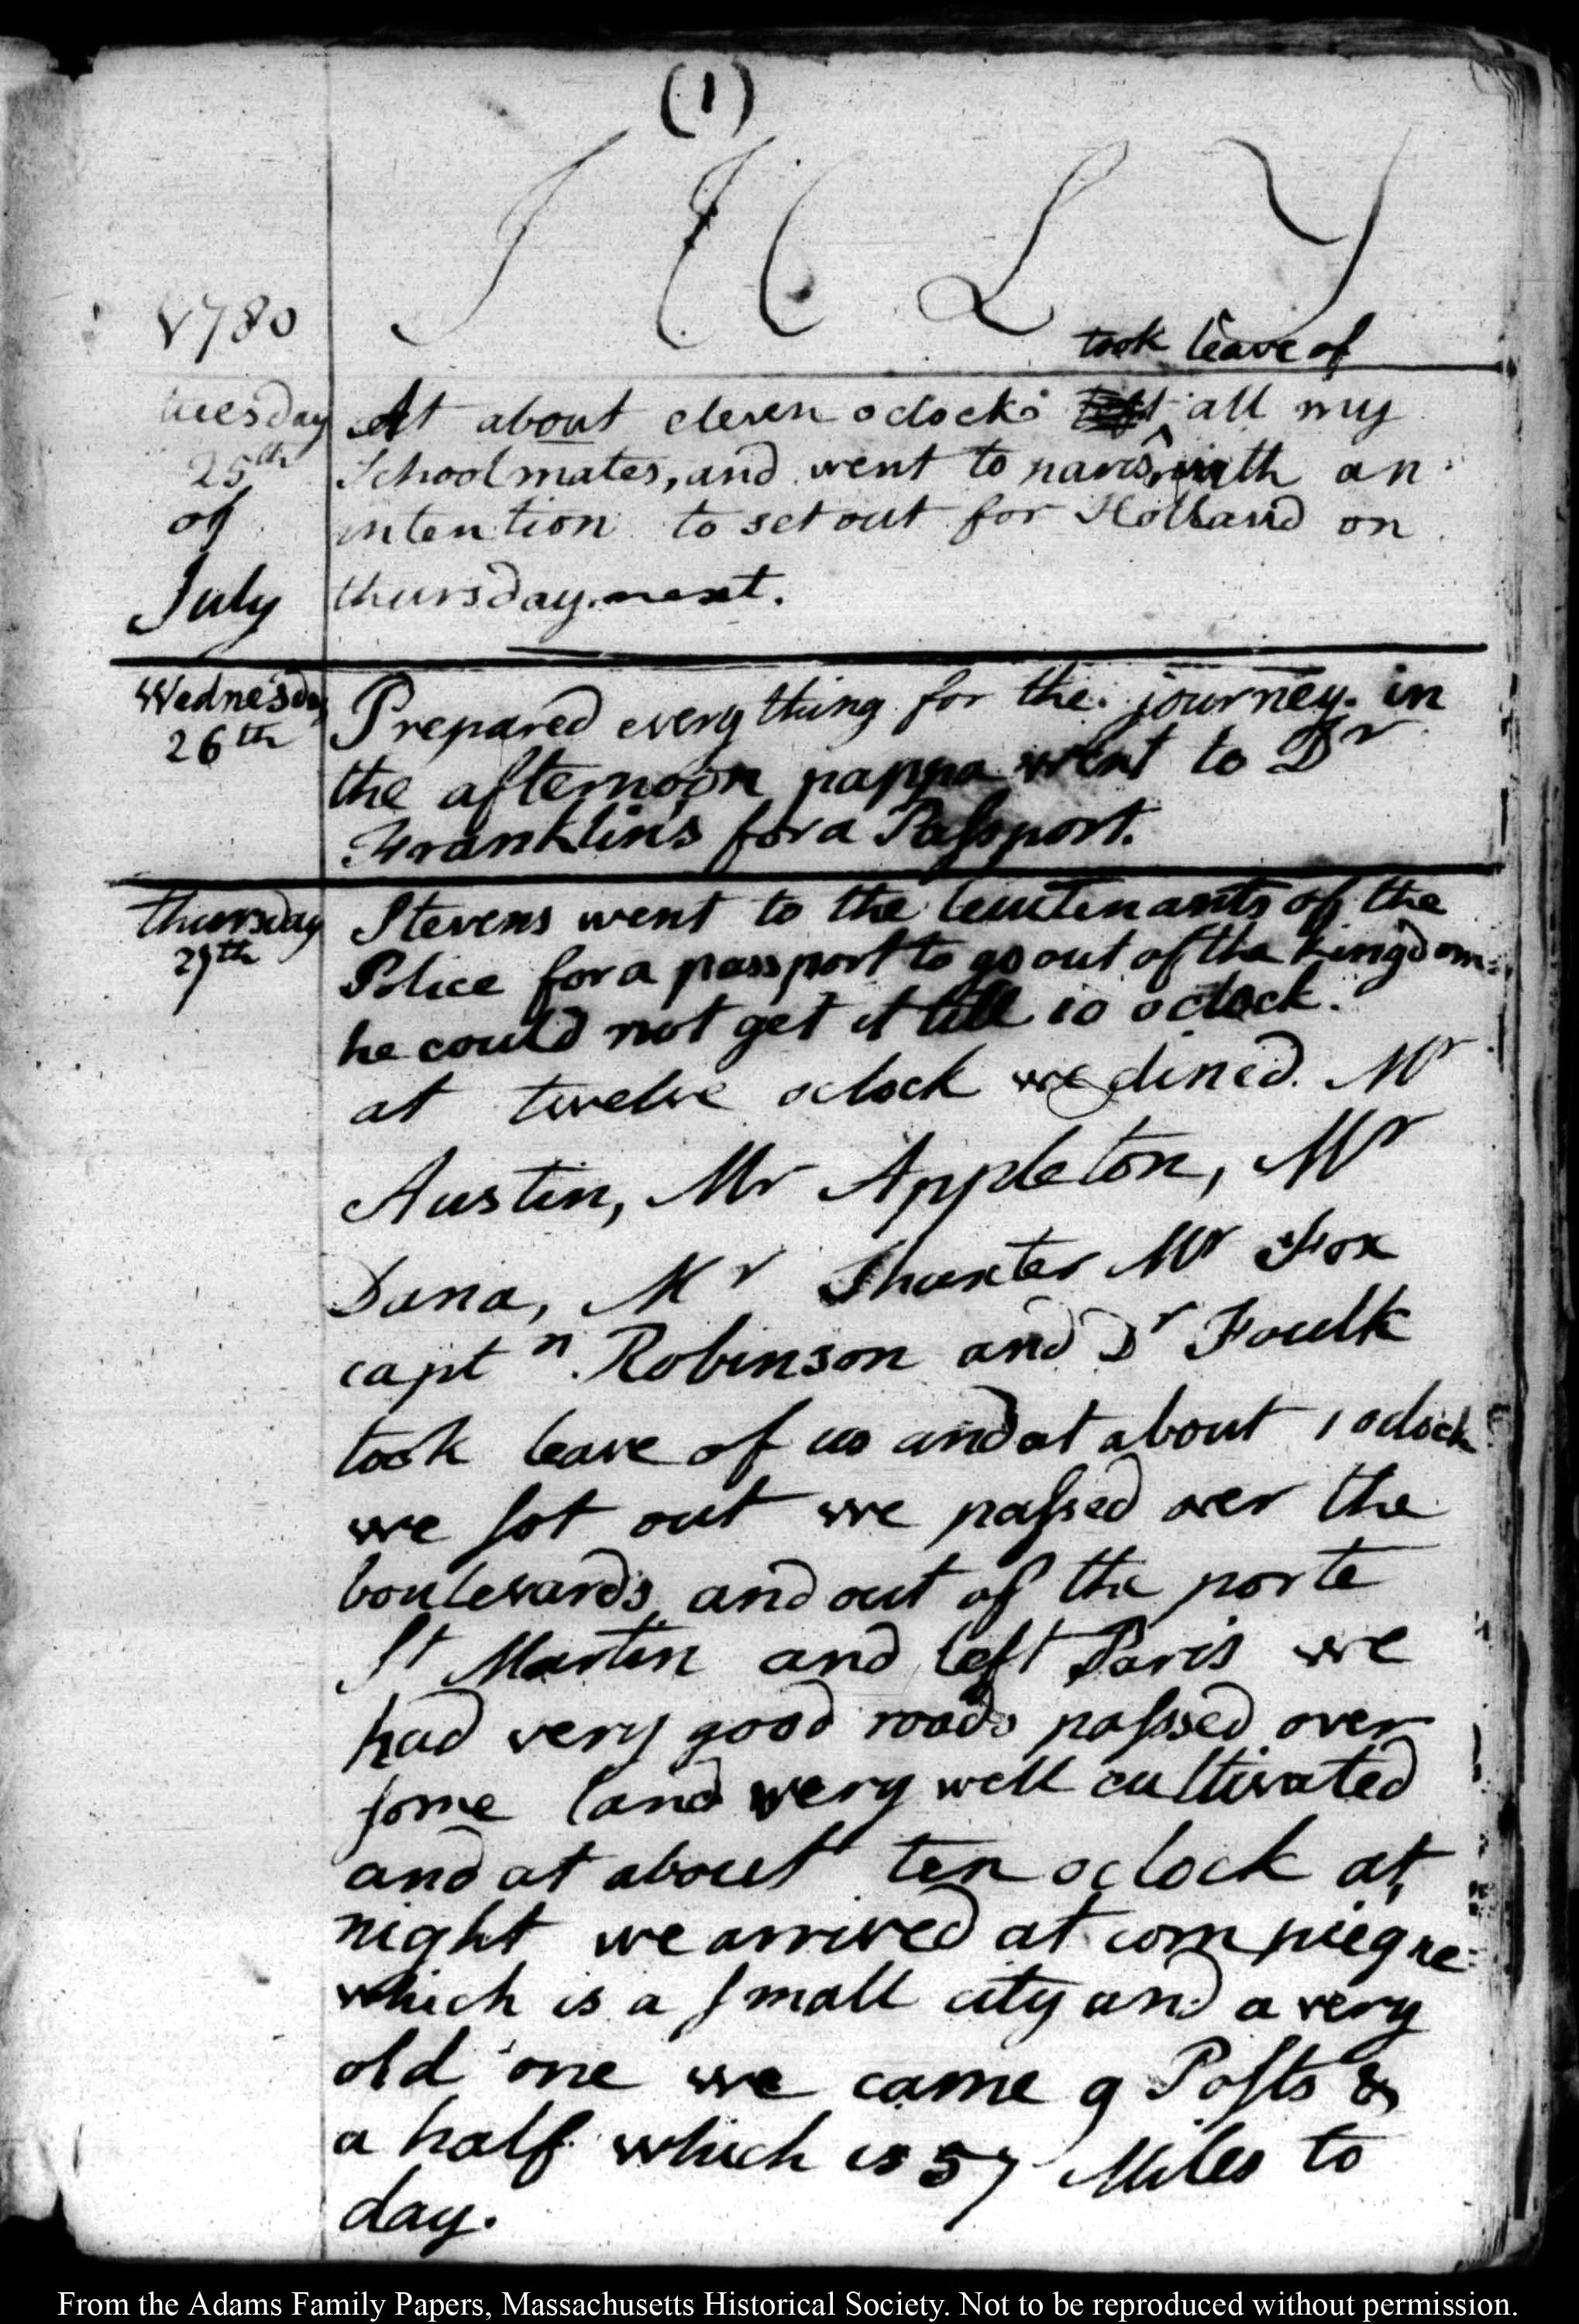 (1)
J U L Y
1780
took leave of
tuesday
25th
of
July
At about eleven oclock left all my
Schoolmates, and went to paris, with an
intention to set out for Holland on
thursday next.
Wednesday
26th
Prepared every thing for the journey. in
the afternoon pappa went to Dr
Franklin's for a Paſsport.
thursday
27th
Stevens went to the leutenants of the
Police for a passport to go out of the kingdom
he could not get it till 10 oclock.
at twelve oclock we dined. Mr
Austin, Mr Appleton, Mr
Dana, Mr Thaxter Mr Fox
captn. Robinson and Dr Foulk
took leave of us and at about 1 oclock
we ſot out we paſsed over the
boulevards, and out of the porte
St Martin and left Paris we
had very good roads paſsed over
ſome land very well cultivated
and at about ten oclock at
night we arrived at compiegne
which is a ſmall city and a very
old one we came 9 Poſts &
a half which is 57 Miles to
day.
From the Adams Family Papers, Massachusetts Historical Society. Not to be reproduced without permission.